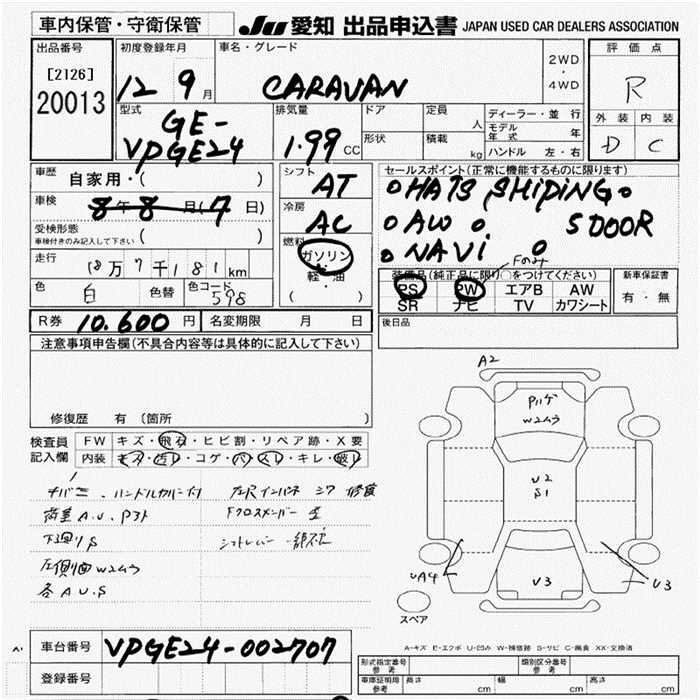 車内保管・守衛保管
JU 愛知 出品申込書 JAPAN USED CAR DEALERS ASSOCIATION
出品番号
[2126]
20013
初度登録年月
12 9月
車名・グレード
CARAVAN
2WD
・
4WD
評価点
R
外装 内装
D C
型式
GE-
VPGE24
排気量
1.99 CC
ドア
形状
定員
人
積載
kg
ディーラー・並行
モデル
年式 年
ハンドル 左・右
車歴
自家用・( )
車検
8年8月(7日)
受検形態
車検付きのみ記入して下さい ( )
走行
18万7千181km
色
白
色替
色コード
598
シフト
AT
冷房
AC
燃料
ガソリン
・
軽・油
( )
セールスポイント(正常に機能するものに限ります)
○HA7S SHiPiNG○
○AW ○ 5DOOR
○NAVi ○
装備品(純正品に限り○をつけてください)
PS PW エアB AW
SR ナビ TV カワシート
新車保証書
有・無
R券 10.600円 名変期限 月 日
後日品
注意事項申告欄(不具合内容等は具体的に記入して下さい)
修復歴 有 (箇所 )
検査員
記入欄
FW キズ・飛石・ヒビ割・リペア跡・X要
内装 キズ・汚レ・コゲ・穴・スレ・キレ・破レ
荷室A.U.Pアト
下回りS
左側面W2ムラ
各A U.S
A2
W2ムラ
U2
S1
V3
UA4
U3
スペア
A-キズ E-エクボ U-凹み W-補修跡 S-サビ C-腐食 XX-交換済
A1
車台番号 VPGE24-002707
登録番号
型式指定番号
参考
類別区分番号
参考
車庫証明用
参考
長さ cm 幅 cm 高さ cm